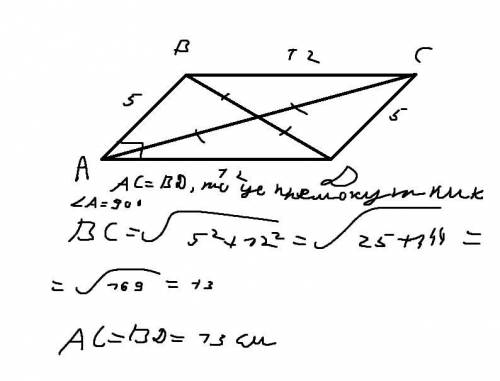 B 12 C
5 5
A 12 D
AC=BD, то це прямокутник
∠A=90°
BC=√5²+12²=√25+144=
=√169=13
AC=BD=13 см